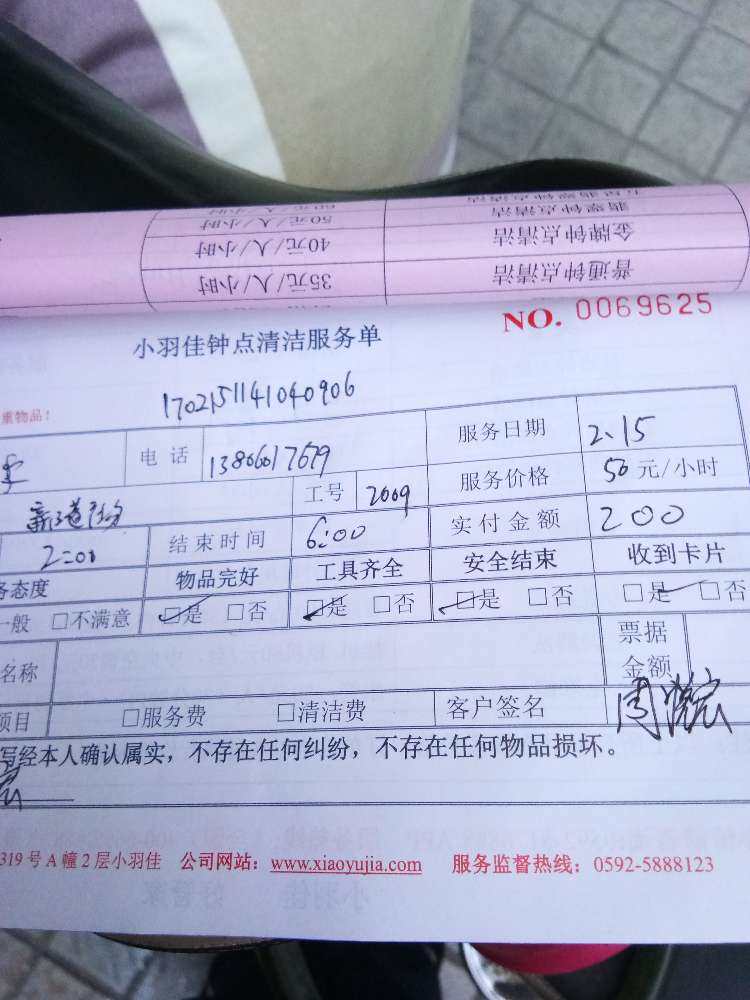 五星翡翠钟点清洁 60元/人/小时
翡翠钟点清洁 50元/人/小时
金牌钟点清洁 40元/人/小时
普通钟点清洁 35元/人/小时
NO. 0069625
小羽佳钟点清洁服务单
1702151141040906
重物品!
电话 服务日期 2.15
工号 2009 服务价格 50 元/小时
2:00 结束时间 6:00 实付金额 200
务态度 物品完好 工具齐全 安全结束 收到卡片
一般 □不满意 □是 □否 □是 □否 □是 □否 □是 □否
名称 票据金额
项目 □服务费 □清洁费 客户签名
写经本人确认属实，不存在任何纠纷，不存在任何物品损坏。
319号A幢2层小羽佳 公司网站：www.xiaoyujia.com 服务监督热线：0592-5888123